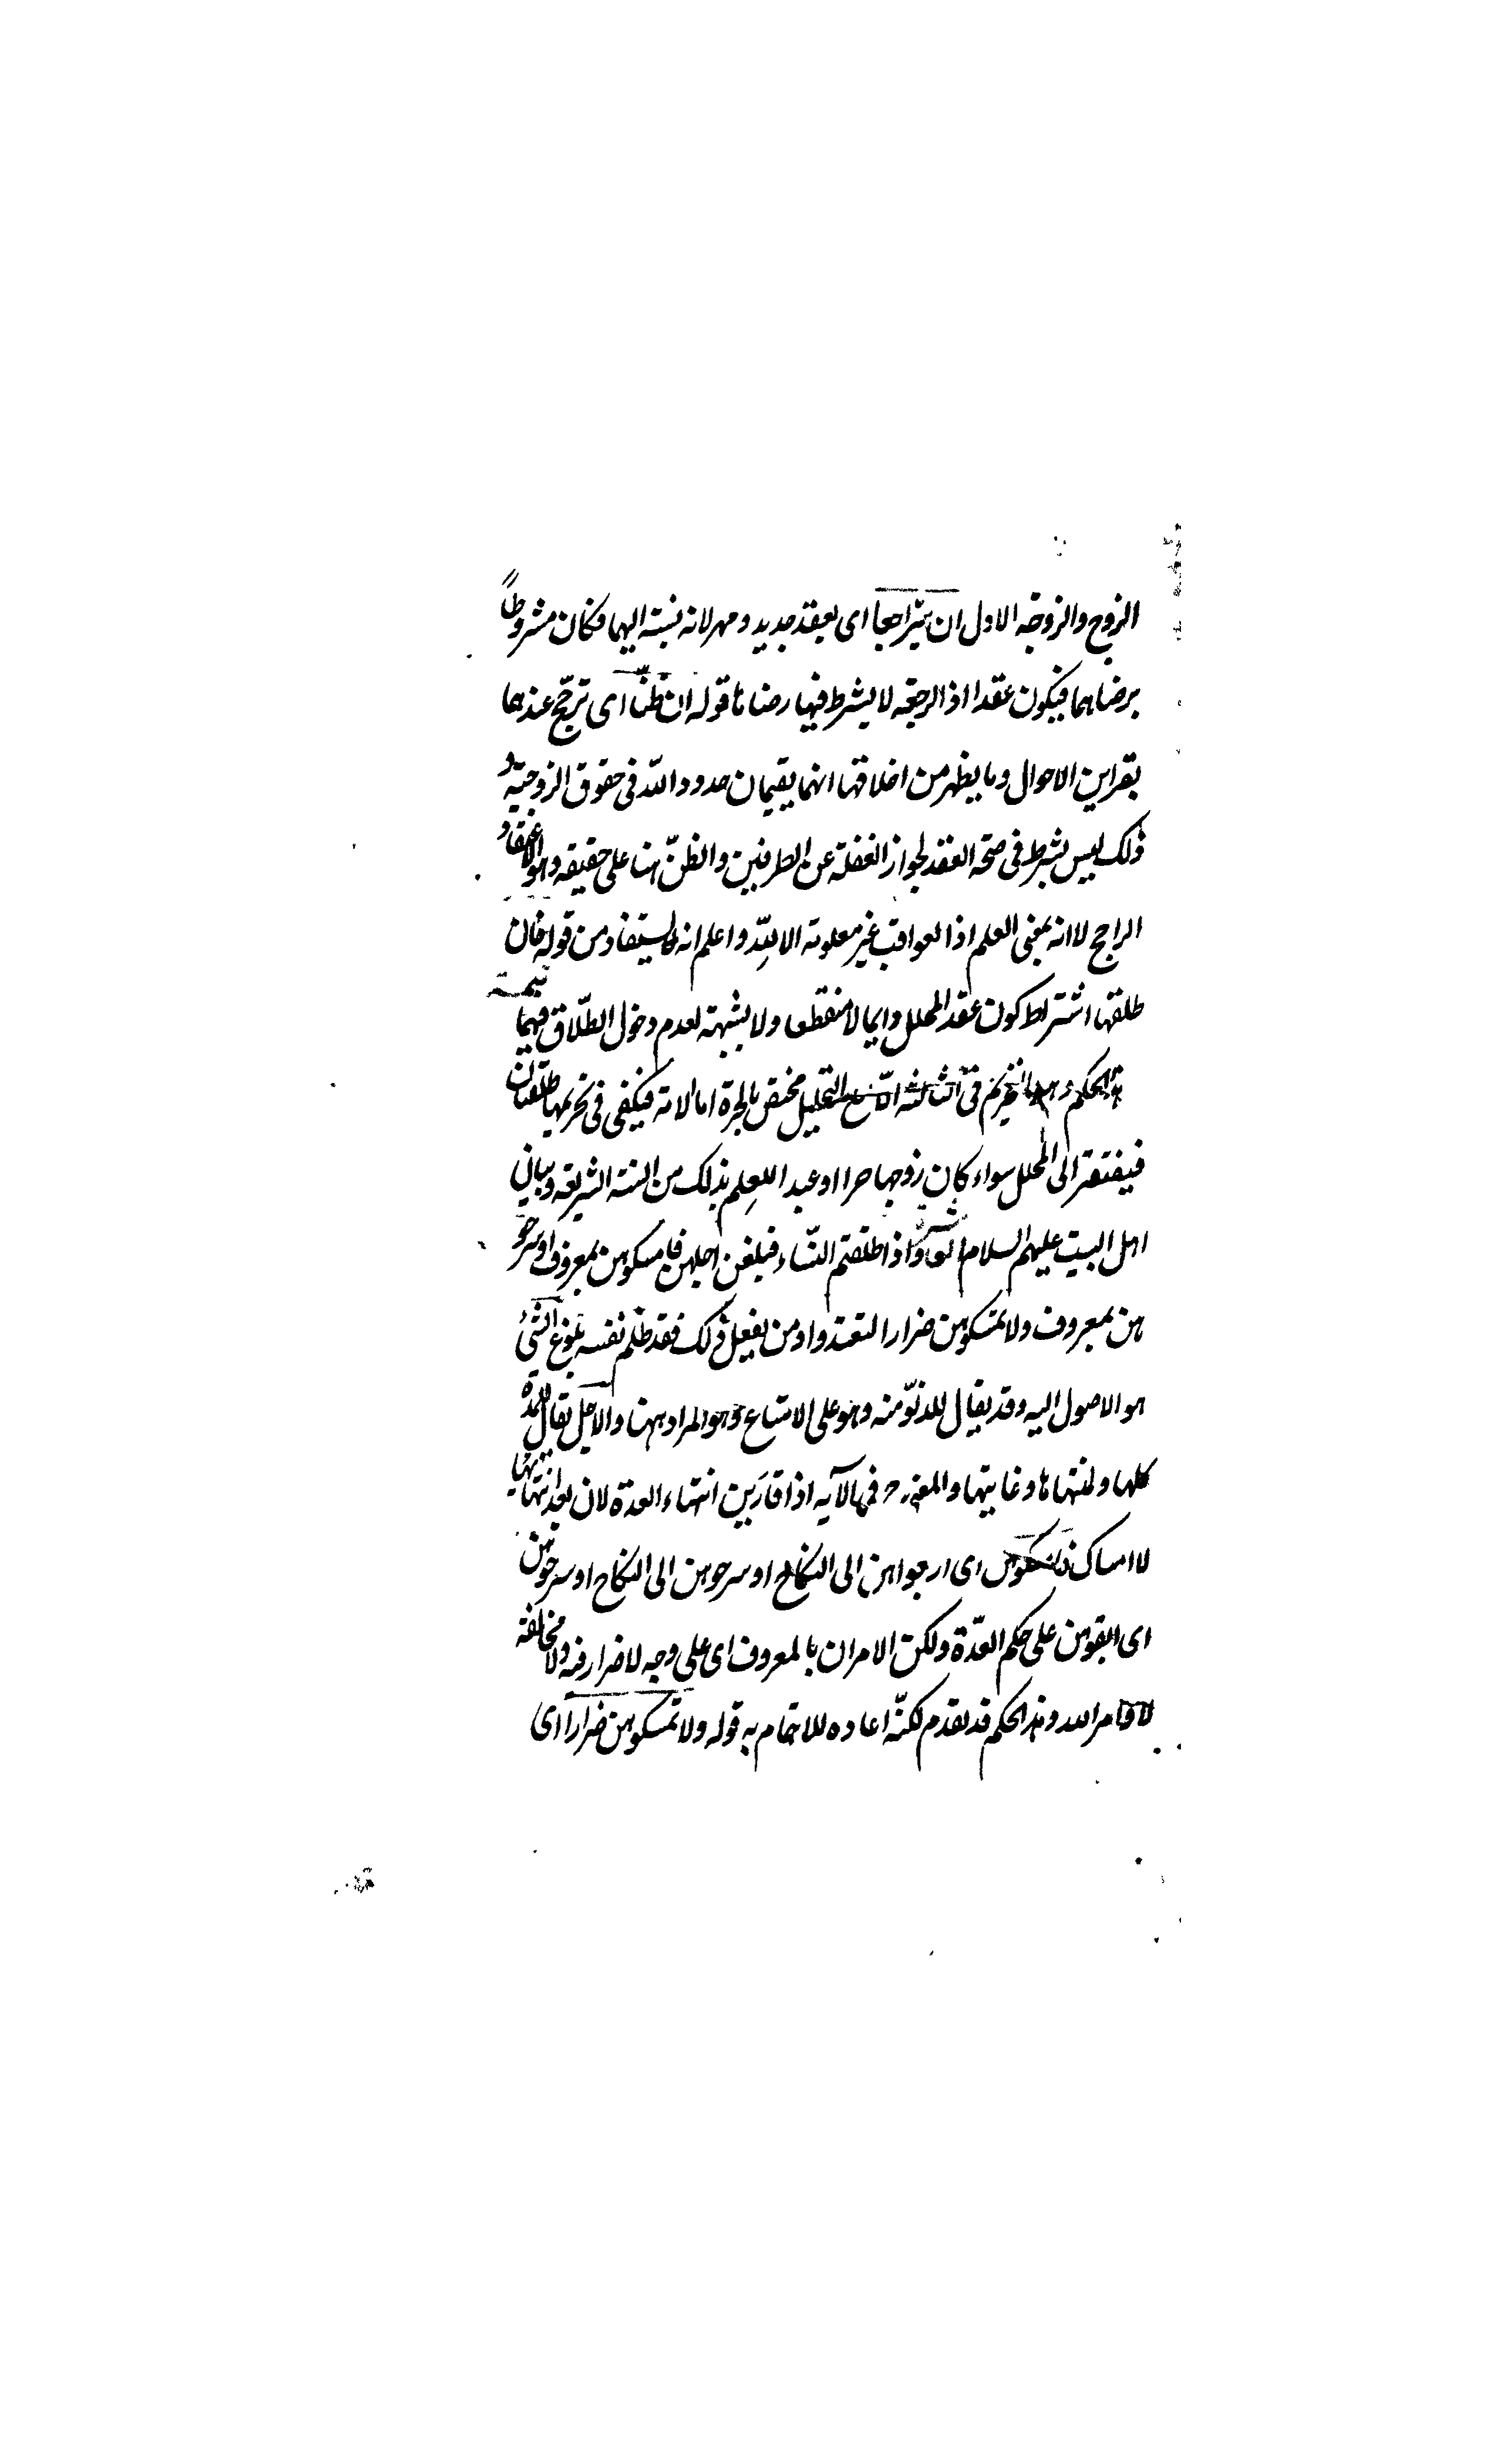 الزوج والزوجه الاول ان يتراجعا اى بعقد جديد ومهر لانه نسبته اليهما فكان مشروطاً
برضاهما فيكون عقدا اذ الرجعة لا يشترط فيها رضاها قوله ان ظنّا اى ترجّح عندهما
بقراين الاحوال وما يظهر من اخلاقهما انهما يقيمان حدود الله فى حقوق الزوجيّة و
ذلك ليس بشرط فى صحة العقد لجواز الغفلة عن الطرفين والظنّ هنا على حقيقه وهو الاعتقاد
الراجح لا انه بمعنى العلم اذ العواقب غير معلومة الا لله واعلم انه يستفاد من قوله فان
طلقها اشتراط كون عقد المحلل دايما لا منقطعا ولا بشبهة لعدم دخول الطلاق فيهما تتمة
الحكم التحريم فى الثالثة الا مع التحليل مختص بالحرة اما الامة فيكفى فى تحريمها طلقتان
فيفتقر الى المحلل سواء كان زوجها حرا او عبدا للعلم بذلك من السنة الشريفة وبيان
اهل البيت عليهم السلام واذا طلقتم النساء فبلغن اجلهن فامسكوهن بمعروف او سرحو
هن بمعروف ولا تمسكوهن ضرارا لتعتدوا ومن يفعل ذلك فقد ظلم نفسه بلوغ الشئ
هو الاصول اليه وقد يقال للدنوّ منه وهو على الاتساع وهو المراد ههنا والاجل يقال للمدة
كلها ولمنتهاها وغايتها والمعنى فى الآيه اذا قاربن انتهاء العدة لان بعد انتهائها
لا امساك فامسكوهن اى ارجعواهن الى النكاح او سرحوهن الى النكاح او سرحوهن
اى ابقوهن على حكم العدّة ولكن الامران بالمعروف اى على وجه لا ضرار فيه ولا مخالفة
لاوامر الله وهذا الحكم قد تقدم لكنّه اعاده للاهتمام به قوله ولا تمسكوهن ضرارا اى